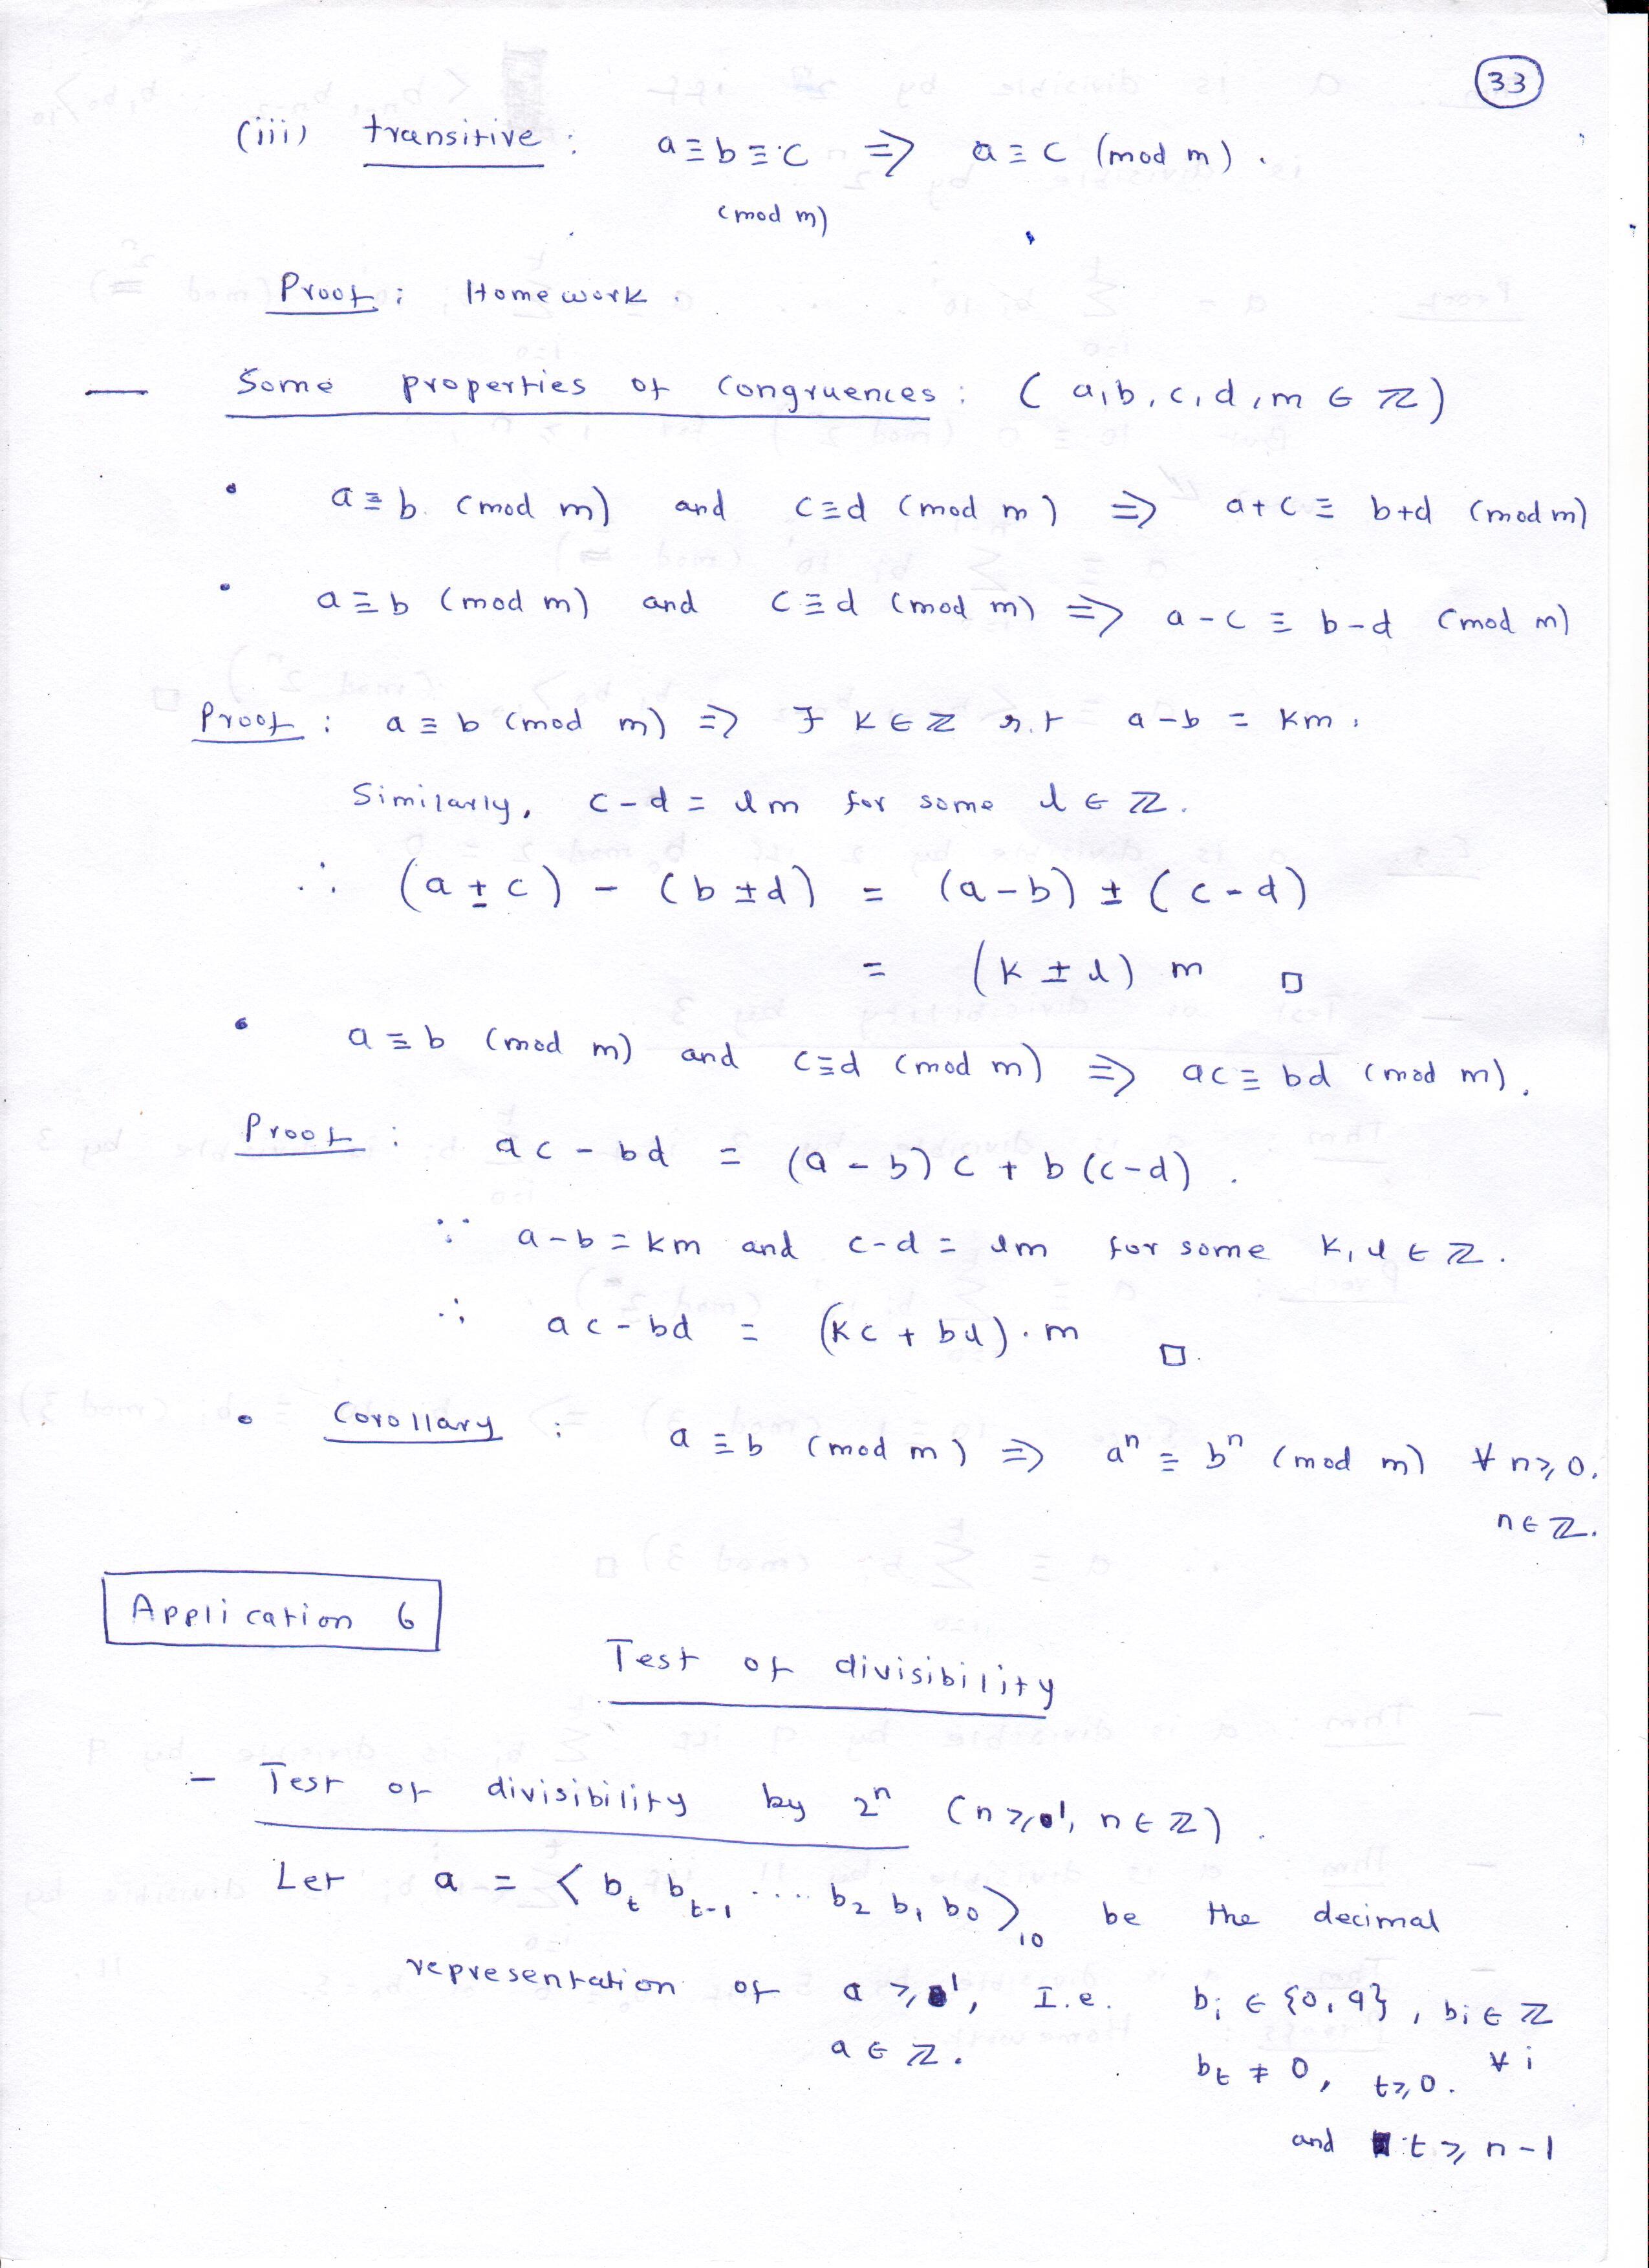 33
(iii) transitive : a ≡ b ≡ c ⇒ a ≡ c (mod m).
(mod m)
Proof : Homework.
— Some properties of congruences : ( a, b, c, d, m ∈ ℤ )
• a ≡ b (mod m) and c ≡ d (mod m) ⇒ a + c ≡ b+d (mod m)
• a ≡ b (mod m) and c ≡ d (mod m) ⇒ a - c ≡ b-d (mod m)
Proof : a ≡ b (mod m) ⇒ ∃ k ∈ ℤ s.t a - b = km.
Similarly, c - d = lm for some l ∈ ℤ.
∴ (a ± c) - (b ± d) = (a - b) ± (c - d)
= (k ± l) m □
• a ≡ b (mod m) and c ≡ d (mod m) ⇒ ac ≡ bd (mod m).
Proof : ac - bd = (a - b) c + b (c-d).
∵ a - b = km and c-d = lm for some k, l ∈ ℤ.
∴ ac - bd = (kc + bl) · m □.
• Corollary : a ≡ b (mod m) ⇒ aⁿ ≡ bⁿ (mod m) ∀ n ⩾ 0,
n ∈ ℤ.
Application 6
Test of divisibility
– Test of divisibility by 2ⁿ (n ⩾ 1, n ∈ ℤ).
Let a = ⟨ b_t b_{t-1} .... b₂ b₁ b₀ ⟩₁₀ be the decimal
representation of a ⩾ 1, I.e. b_i ∈ {0, 9}, b_i ∈ ℤ
a ∈ ℤ. b_t ≠ 0, t ⩾ 0. ∀ i
and t ⩾ n - 1